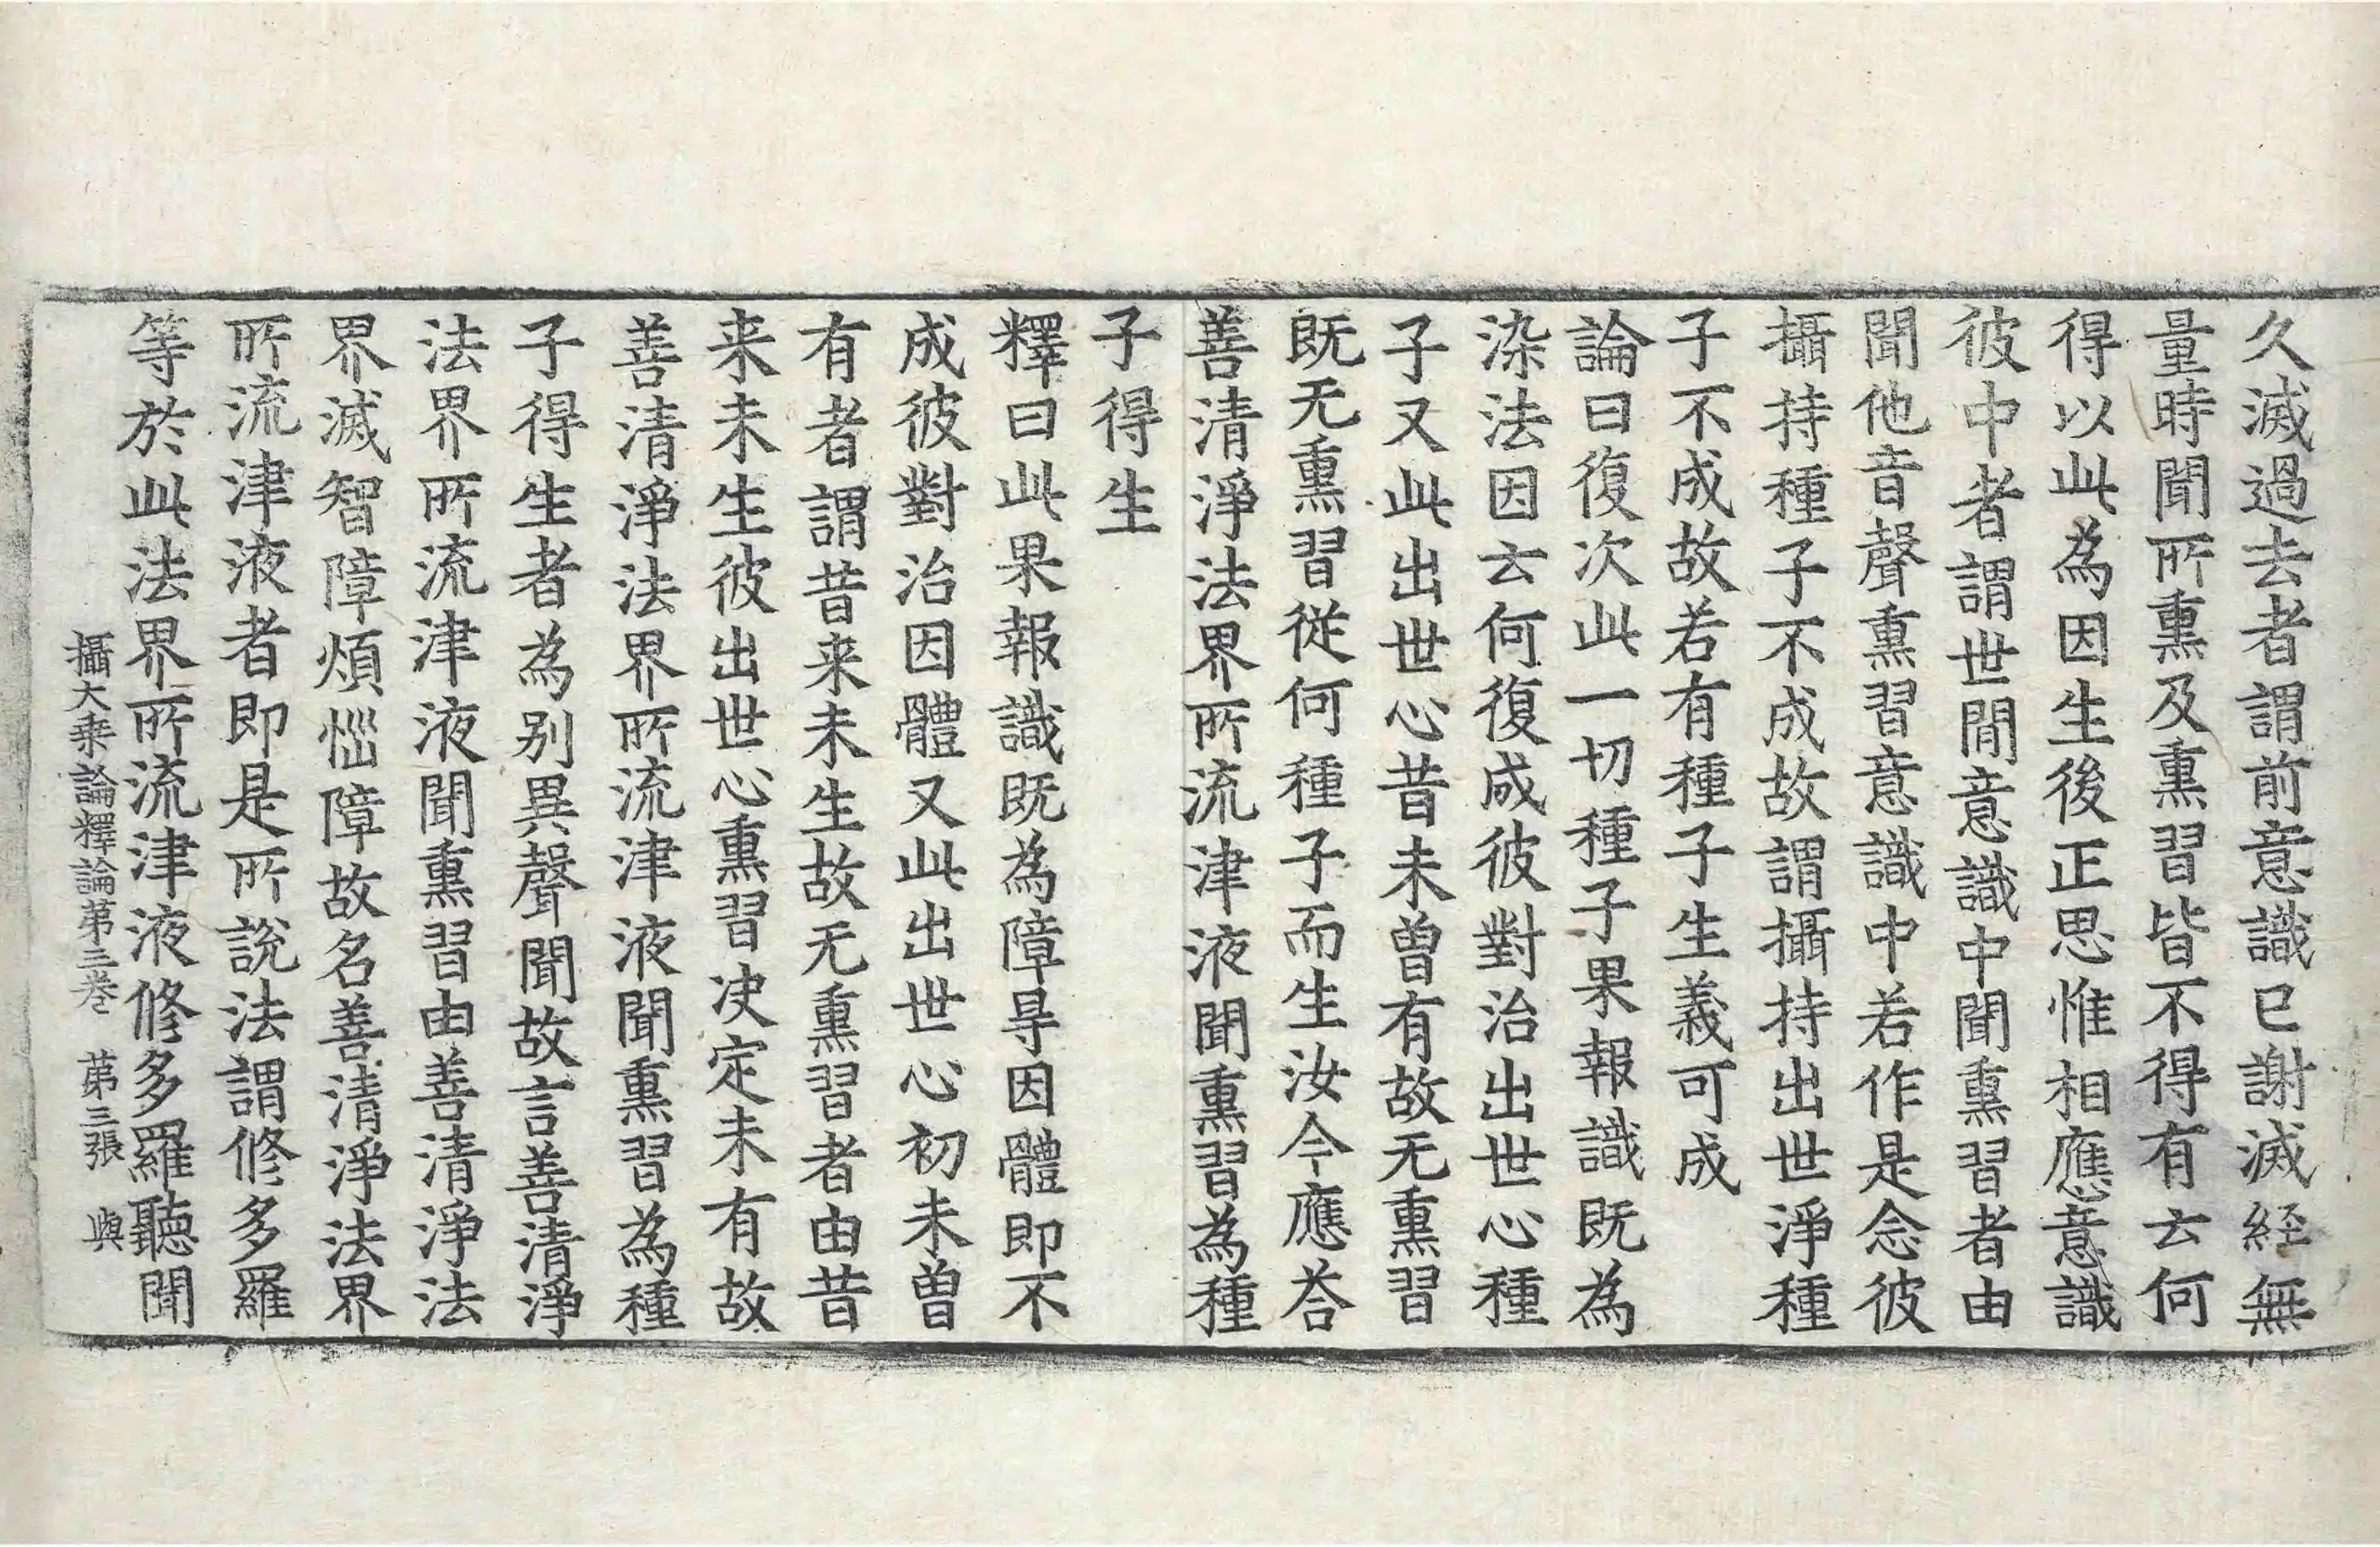 久滅過去者謂前意識已謝滅經無
量時聞所熏及熏習皆不得有云何
得以此為因生後正思惟相應意識
彼中者謂世間意識中聞熏習者由
聞他音聲熏習意識中若作是念彼
攝持種子不成故謂攝持出世淨種
子不成故若有種子生義可成
論曰復次此一切種子果報識既為
染法因云何復成彼對治出世心種
子又此出世心昔未曾有故无熏習
既无熏習從何種子而生汝今應荅
善清淨法界所流津液聞熏習為種
子得生
釋曰此果報識既為障㝵因體即不
成彼對治因體又此出世心初未曾
有者謂昔来未生故无熏習者由昔
来未生彼出世心熏習决定未有故
善清淨法界所流津液聞熏習為種
子得生者為别異聲聞故言善清淨
法界所流津液聞熏習由善清淨法
界滅智障煩惱障故名善清淨法界
所流津液者即是所說法謂修多羅
等於此法界所流津液修多羅聽聞
攝大乗論釋論苐三卷 苐三張 與